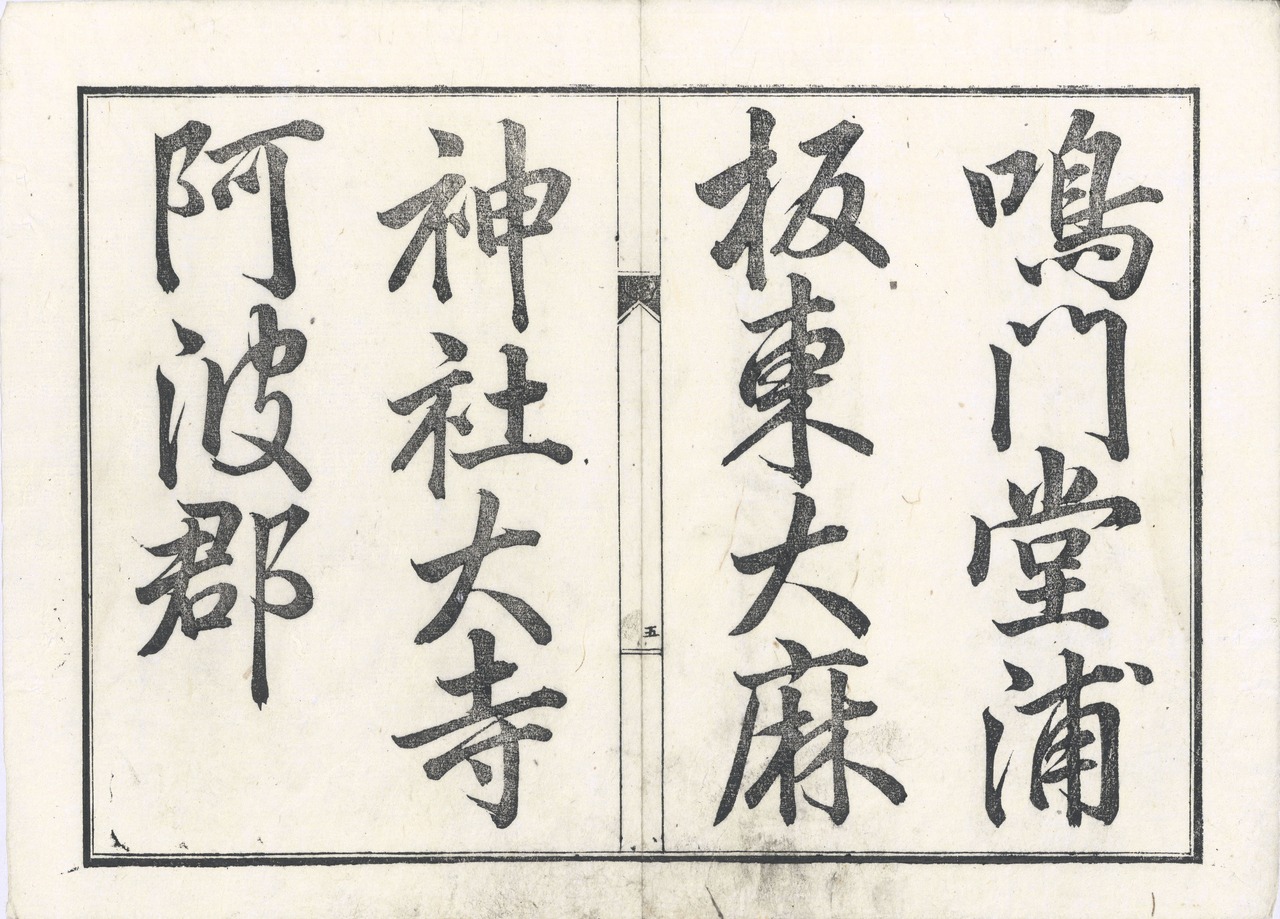 鳴門堂浦
板東大麻
五
神社大寺
阿波郡